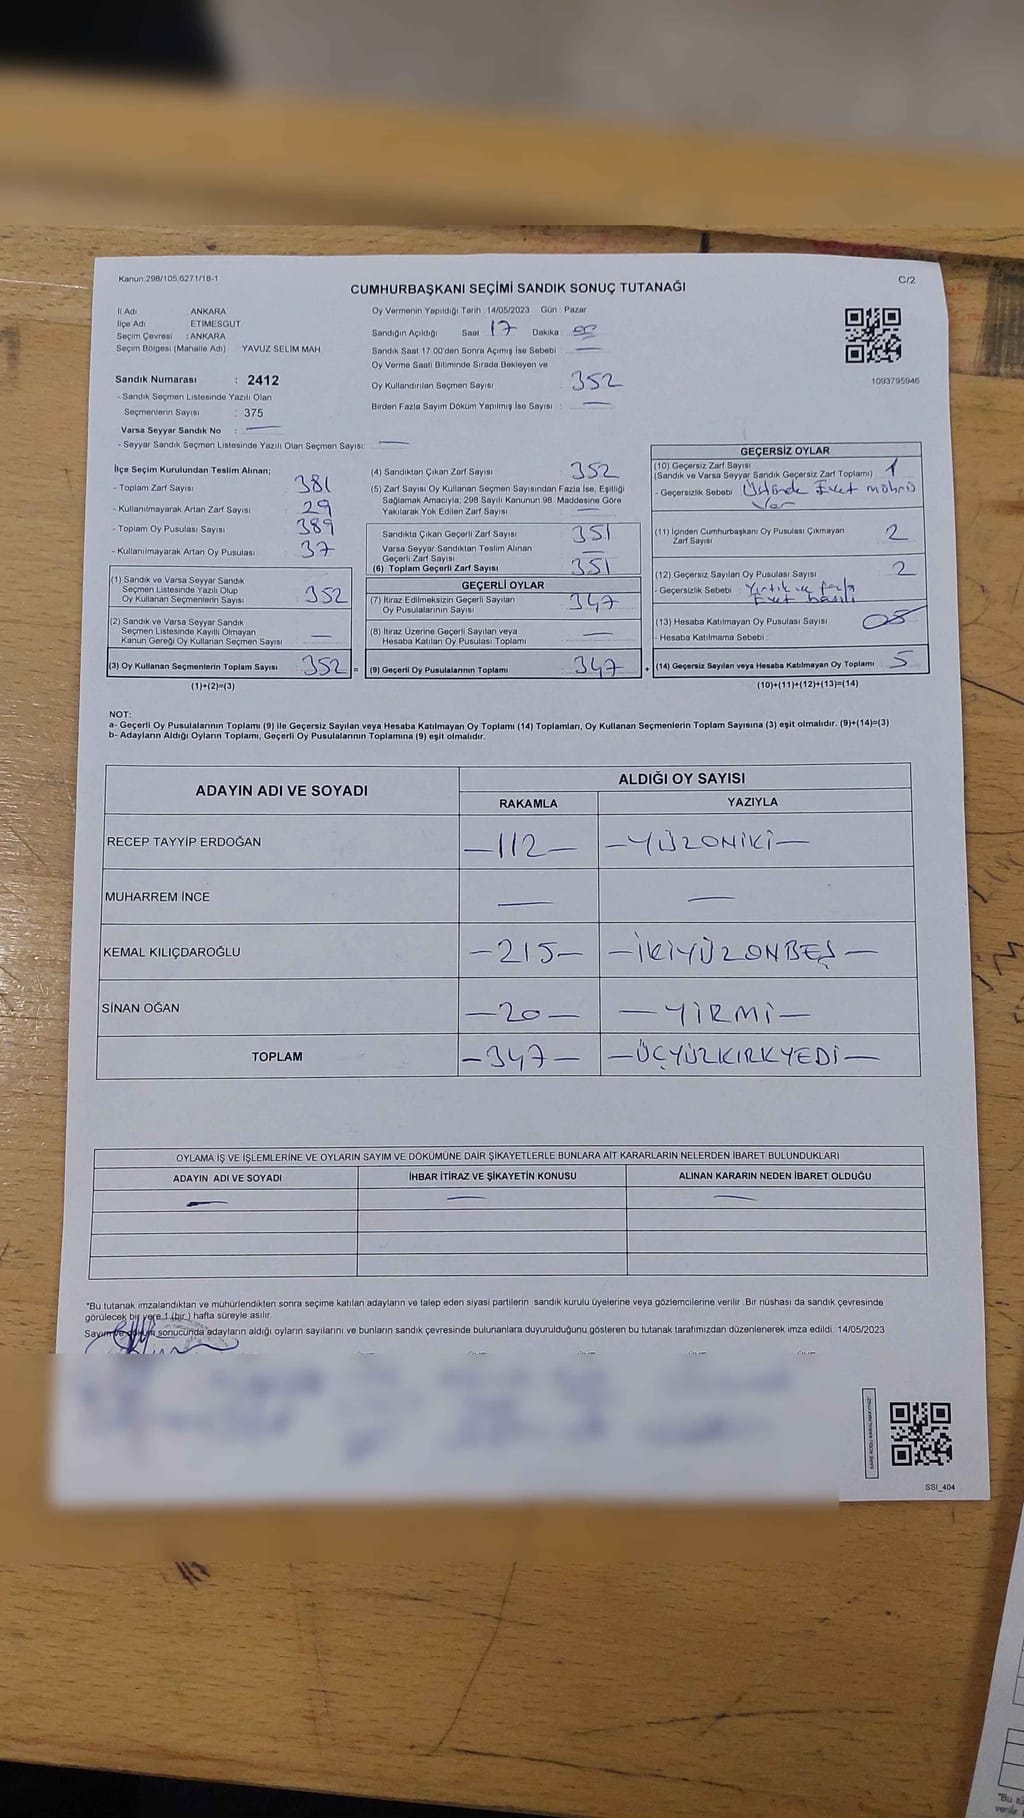 Kanun:298/105,6271/18-1
C/2
CUMHURBAŞKANI SEÇİMİ SANDIK SONUÇ TUTANAĞI
İl Adı ANKARA
İlçe Adı ETİMESGUT
Seçim Çevresi : ANKARA
Seçim Bölgesi (Mahalle Adı) YAVUZ SELİM MAH
Sandık Numarası : 2412
- Sandık Seçmen Listesinde Yazılı Olan
Seçmenlerin Sayısı : 375
Varsa Seyyar Sandık No : —
- Seyyar Sandık Seçmen Listesinde Yazılı Olan Seçmen Sayısı: —
Oy Vermenin Yapıldığı Tarih :14/05/2023 Gün : Pazar
Sandığın Açıldığı Saat : 17 Dakika :
Sandık Saat 17.00'den Sonra Açımış İse Sebebi : —
Oy Verme Saati Bitiminde Sırada Bekleyen ve
Oy Kullandırılan Seçmen Sayısı : 352
Birden Fazla Sayım Döküm Yapılmış İse Sayısı : —
1093795946
İlçe Seçim Kurulundan Teslim Alınan;
- Toplam Zarf Sayısı : 381
- Kullanılmayarak Artan Zarf Sayısı : 29
- Toplam Oy Pusulası Sayısı : 389
- Kullanılmayarak Artan Oy Pusulası : 37
(1) Sandık ve Varsa Seyyar Sandık
Seçmen Listesinde Yazılı Olup
Oy Kullanan Seçmenlerin Sayısı : 352
(2) Sandık ve Varsa Seyyar Sandık
Seçmen Listesinde Kayıtlı Olmayan
Kanun Gereği Oy Kullanan Seçmen Sayısı : —
(3) Oy Kullanan Seçmenlerin Toplam Sayısı : 352 =
(1)+(2)=(3)
(4) Sandıktan Çıkan Zarf Sayısı : 352
(5) Zarf Sayısı Oy Kullanan Seçmen Sayısından Fazla İse, Eşitliği
Sağlamak Amacıyla; 298 Sayılı Kanunun 98. Maddesine Göre
Yakılarak Yok Edilen Zarf Sayısı : —
Sandıkta Çıkan Geçerli Zarf Sayısı : 351
Varsa Seyyar Sandıktan Teslim Alınan
Geçerli Zarf Sayısı : —
(6) Toplam Geçerli Zarf Sayısı : 351
GEÇERLİ OYLAR
(7) İtiraz Edilmeksizin Geçerli Sayılan
Oy Pusulalarının Sayısı : 347
(8) İtiraz Üzerine Geçerli Sayılan veya
Hesaba Katılan Oy Pusulası Toplamı : —
(9) Geçerli Oy Pusulalarının Toplamı : 347 +
GEÇERSİZ OYLAR
(10) Geçersiz Zarf Sayısı
(Sandık ve Varsa Seyyar Sandık Geçersiz Zarf Toplamı) : 1
- Geçersizlik Sebebi : Üstünde Evet mührü
Var
(11) İçinden Cumhurbaşkanı Oy Pusulası Çıkmayan
Zarf Sayısı : 2
(12) Geçersiz Sayılan Oy Pusulası Sayısı : 2
- Geçersizlik Sebebi : Yırtık ve fazla
Evet basılı
(13) Hesaba Katılmayan Oy Pusulası Sayısı :
- Hesaba Katılmama Sebebi :
(14) Geçersiz Sayılan veya Hesaba Katılmayan Oy Toplamı : 5
(10)+(11)+(12)+(13)=(14)
NOT:
a- Geçerli Oy Pusulalarının Toplamı (9) ile Geçersiz Sayılan veya Hesaba Katılmayan Oy Toplamı (14) Toplamları, Oy Kullanan Seçmenlerin Toplam Sayısına (3) eşit olmalıdır. (9)+(14)=(3)
b- Adayların Aldığı Oyların Toplamı, Geçerli Oy Pusulalarının Toplamına (9) eşit olmalıdır.
ADAYIN ADI VE SOYADI
ALDIĞI OY SAYISI
RAKAMLA YAZIYLA
RECEP TAYYİP ERDOĞAN —112— —YÜZONİKİ—
MUHARREM İNCE — —
KEMAL KILIÇDAROĞLU —215— —İKİYÜZONBEŞ—
SİNAN OĞAN —20— —YİRMİ—
TOPLAM —347— —ÜÇYÜZKIRKYEDİ—
OYLAMA İŞ VE İŞLEMLERİNE VE OYLARIN SAYIM VE DÖKÜMÜNE DAİR ŞİKAYETLERLE BUNLARA AİT KARARLARIN NELERDEN İBARET BULUNDUKLARI
ADAYIN ADI VE SOYADI İHBAR İTİRAZ VE ŞİKAYETİN KONUSU ALINAN KARARIN NEDEN İBARET OLDUĞU
— — —
*Bu tutanak imzalandıktan ve mühürlendikten sonra seçime katılan adayların ve talep eden siyasi partilerin sandık kurulu üyelerine veya gözlemcilerine verilir. Bir nüshası da sandık çevresinde
görülecek bir yere 1 (bir) hafta süreyle asılır.
Sayım ve döküm sonucunda adayların aldığı oyların sayılarını ve bunların sandık çevresinde bulunanlara duyurulduğunu gösteren bu tutanak tarafımızdan düzenlenerek imza edildi. 14/05/2023
SSI_404
*Bu